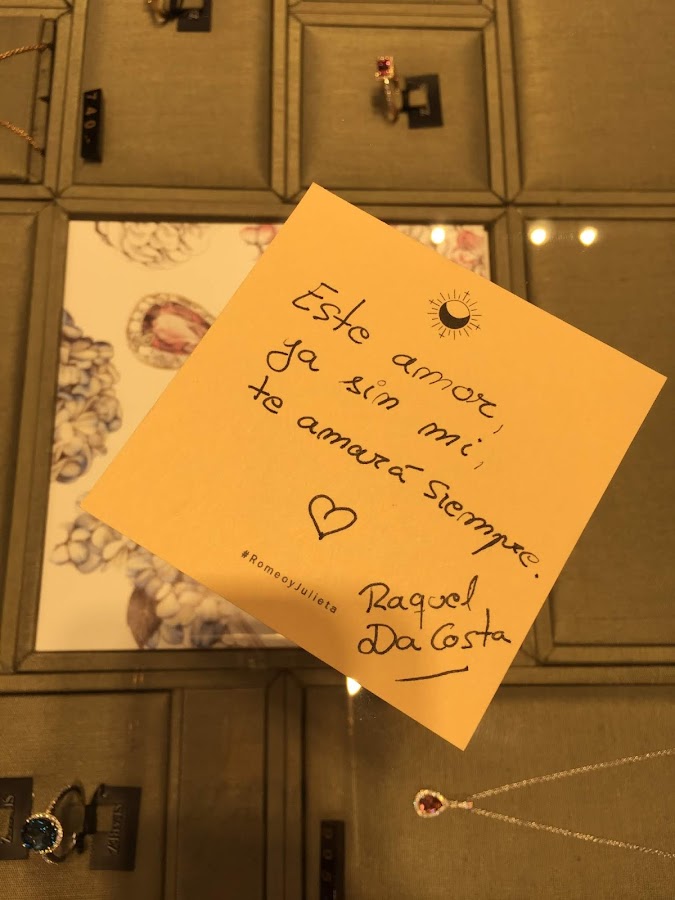 740.-
Este amor,
ya sin mi,
te amará siempre.
#RomeoyJulieta
Raquel
Da Costa